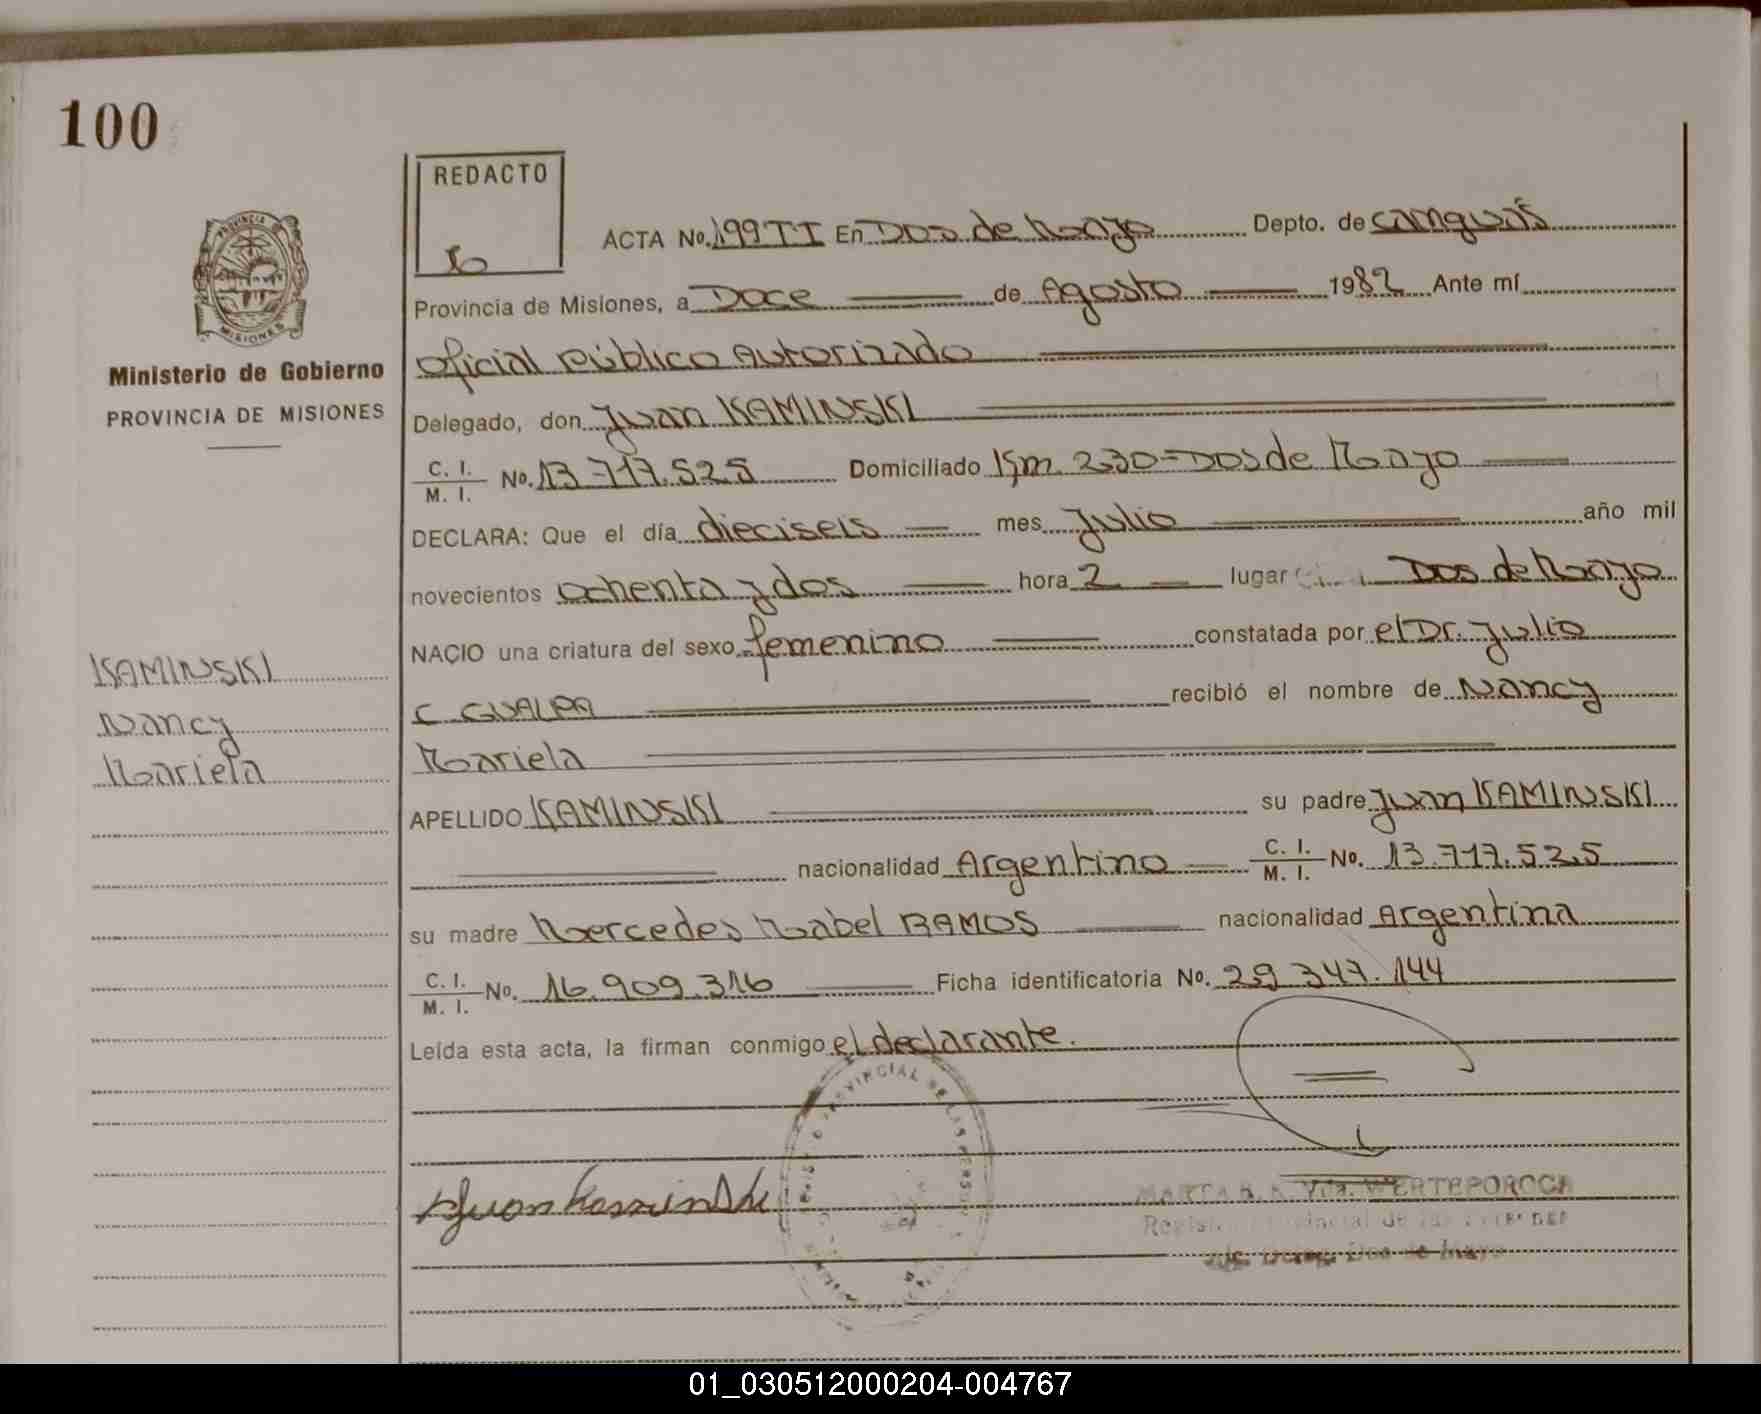 100
REDACTO
PROVINCIA
MISIONES
Ministerio de Gobierno
PROVINCIA DE MISIONES
ACTA No. 199 TI En Dos de Mayo Depto. de cainguás
Provincia de Misiones, a Doce de Agosto 1982 Ante mí
Oficial Público Autorizado
Delegado, don Juan KAMINSKI
C. I. / M. I. No. 13.717.525 Domiciliado Km. 230 = Dos de Mayo
DECLARA: Que el día dieciseis mes Julio año mil
novecientos ochenta y dos hora 2 lugar Dos de Mayo
NACIO una criatura del sexo femenino constatada por el Dr. Julio
C GUALPA recibió el nombre de Nancy
Mariela
APELLIDO KAMINSKI su padre Juan KAMINSKI
nacionalidad Argentino C. I. / M. I. No. 13.717.525
su madre Mercedes Mabel RAMOS nacionalidad Argentina
C. I. / M. I. No. 16.909.316 Ficha identificatoria No. 29.347.144
Leída esta acta, la firman conmigo el declarante.
KAMINSKI
Nancy
Mariela
Juan Kaminski
MARTA Vda. WERTEPOROCH
Provincial de las
Dos de Mayo
01_030512000204-004767